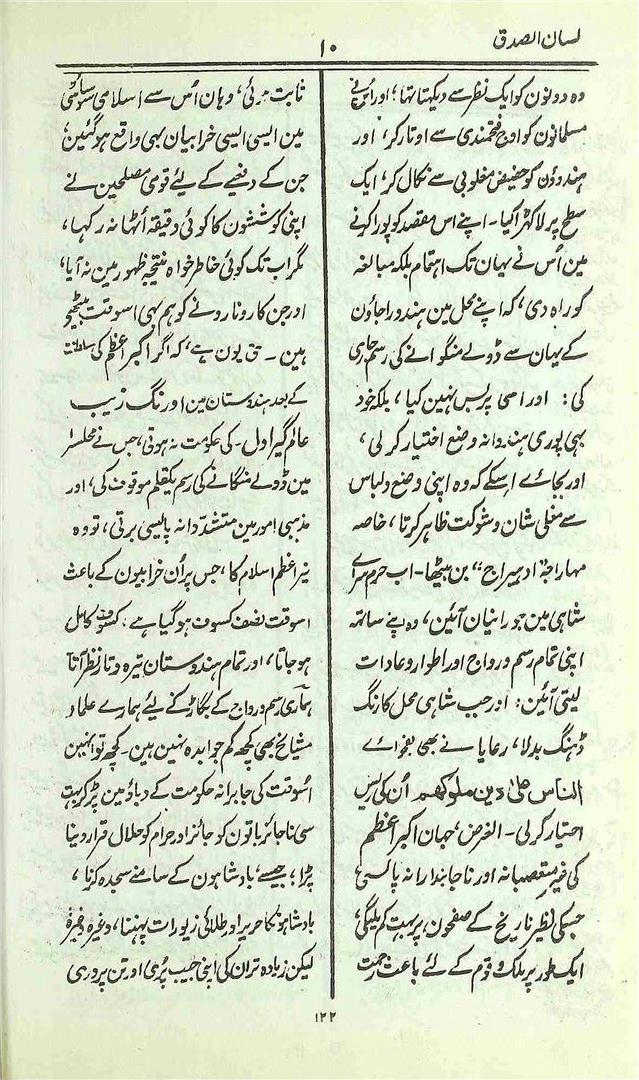 لسان الصدق
۱۰
وہ دونون کو ایک نظر سے دیکہتا تہا؛ اور اُسنے
مسلمانون کو اوج فتحمندی سے اوتار کر، اور
ہندوؤن کو حضیض مغلوبی سے نکال کر، ایک
سطح پر لا کھڑا کیا۔ اپنے اس مقصد کو پورا کرنے
مین اُس نے یہان تک اہتمام بلکہ مبالغہ
کو راہ دی، کہ اپنے محل مین ہندو راجاؤن
کے یہان سے ڈولے منگوانے کی رسم جاری
کی: اور اسی پر بس نہین کیا، بلکہ خود
بہی پوری ہندوانہ وضع اختیار کر لی،
اور بجائے اسکے کہ وہ اپنی وضع و لباس
سے مغلی شان و شوکت ظاہر کرتا، خاصہ
مہاراجہ "ادہیراج" بن بیٹھا۔ اب حرم سرائے
شاہی مین جو رانیان آئین، وہ اپنے ساتہہ
اپنی تمام رسم و رواج اور اطوار و عادات
لیتی آئین: اور جب شاہی محل کا رنگ
ڈہنگ بدلا، رعایا نے بھی بفحوائے
الناس علیٰ دین ملوکھم اُن کی ریس
اختیار کر لی۔ الغرض، جہان اکبر اعظم
کی غیر متعصبانہ اور ناجانبدارانہ پالیسی،
جسکی نظیر تاریخ کے صفحون پر بہت کم ملیگی،
ایک طور پر ملک و قوم کے لئے باعث رحمت
ثابت ہوئی، وہان اُس سے اسلامی سوسائٹی
مین ایسی ایسی خرابیان بہی واقع ہوگئین،
جن کے دفعیے کے لیئے قومی مصلحین نے
اپنی کوششون کا کوئی دقیقہ اُٹھا نہ رکہا،
مگر اب تک کوئی خاطر خواہ نتیجہ ظہور مین نہ آیا،
اور جن کا رونا رونے کو ہم بہی اسوقت بیٹھے
ہین۔ حق یون ہے، کہ اگر اکبر اعظم کی سلطنت
کے بعد ہندوستان مین اورنگ زیب
عالمگیر اول۔ کی حکومت نہ ہوتی، جس نے محلسرا
مین ڈولے منگانے کی رسم یکقلم موقوف کی، اور
مذہبی امور مین متشددانہ پالیسی برتی، تو وہ
نیر اعظم اسلام کا، جس پر اُن خرابیون کے باعث
اسوقت نصف کسوف ہو گیا ہے، کسوف کامل
ہو جاتا، اور تمام ہندوستان تیرہ و تار نظر آتا
ہماری رسم و رواج کے بگاڑنے کے لیئے ہمارے علما و
مشایخ بھی کچھ کم جوابدہ نہین ہین۔ کچھ تو انہین
اُسوقت کی جابرانہ حکومت کے دباؤ مین پڑ کر بہت
سی ناجائز باتون کو جائز اور حرام کو حلال قرار دینا
پڑا؛ جیسے، بادشاہون کے سامنے سجدہ کرنا،
بادشاہونکا حریر اور طلائی زیورات پہننا، وغیرہ وغیرہ
لیکن زیادہ تر ان کی اپنی جیب پُری اور تن پروری
۱۲۲